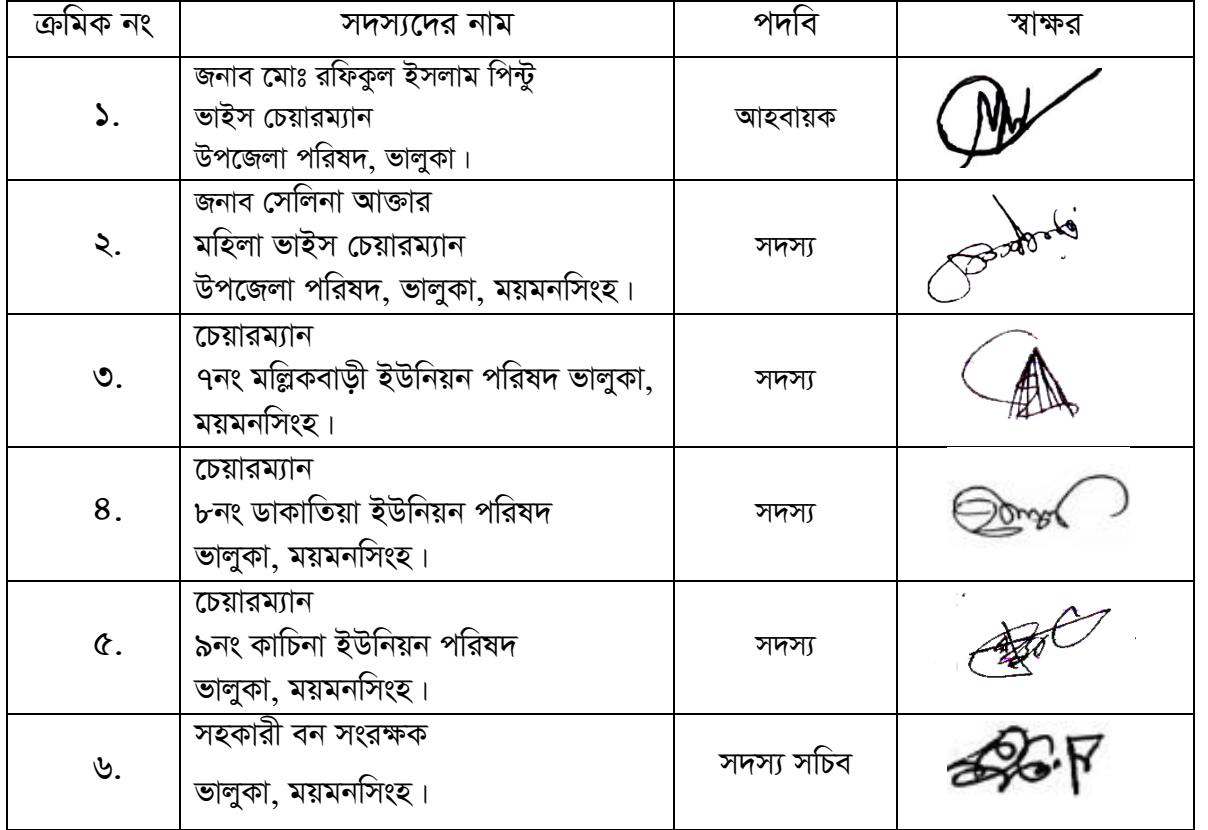 ক্রমিক নং সদস্যদের নাম পদবি স্বাক্ষর
১. জনাব মোঃ রফিকুল ইসলাম পিন্টু
ভাইস চেয়ারম্যান
উপজেলা পরিষদ, ভালুকা। আহবায়ক
২. জনাব সেলিনা আক্তার
মহিলা ভাইস চেয়ারম্যান
উপজেলা পরিষদ, ভালুকা, ময়মনসিংহ। সদস্য
৩. চেয়ারম্যান
৭নং মল্লিকবাড়ী ইউনিয়ন পরিষদ ভালুকা,
ময়মনসিংহ। সদস্য
৪. চেয়ারম্যান
৮নং ডাকাতিয়া ইউনিয়ন পরিষদ
ভালুকা, ময়মনসিংহ। সদস্য
৫. চেয়ারম্যান
৯নং কাচিনা ইউনিয়ন পরিষদ
ভালুকা, ময়মনসিংহ। সদস্য
৬. সহকারী বন সংরক্ষক
ভালুকা, ময়মনসিংহ। সদস্য সচিব